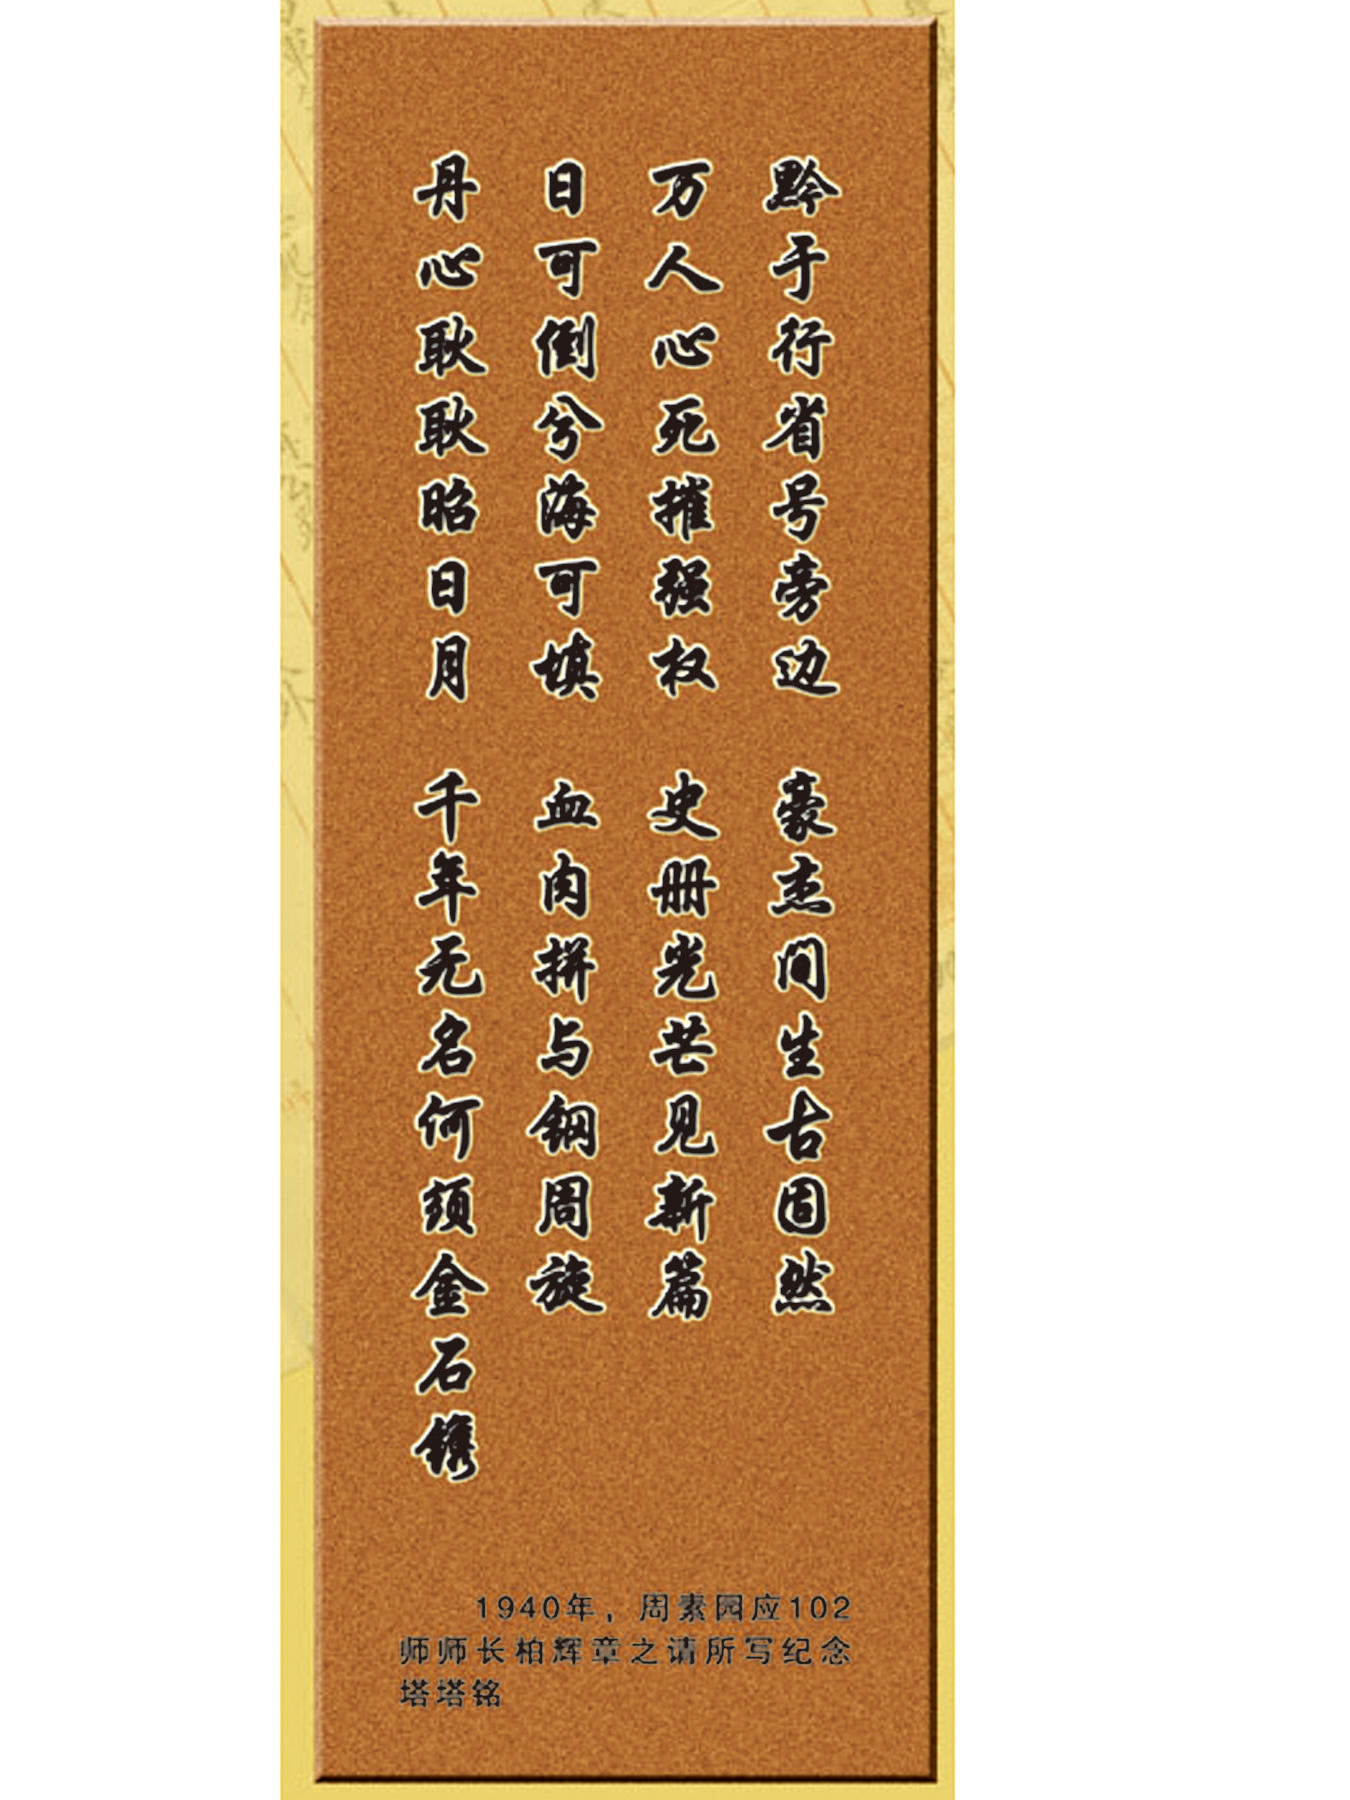 黔于行省号旁边 豪杰间生古固然
万人心死摧强权 史册光芒见新篇
日可倒兮海可填 血肉拼与钢周旋
丹心耿耿昭日月 千年无名何须金石镌
1940年，周素园应102
师师长柏辉章之请所写纪念
塔塔铭